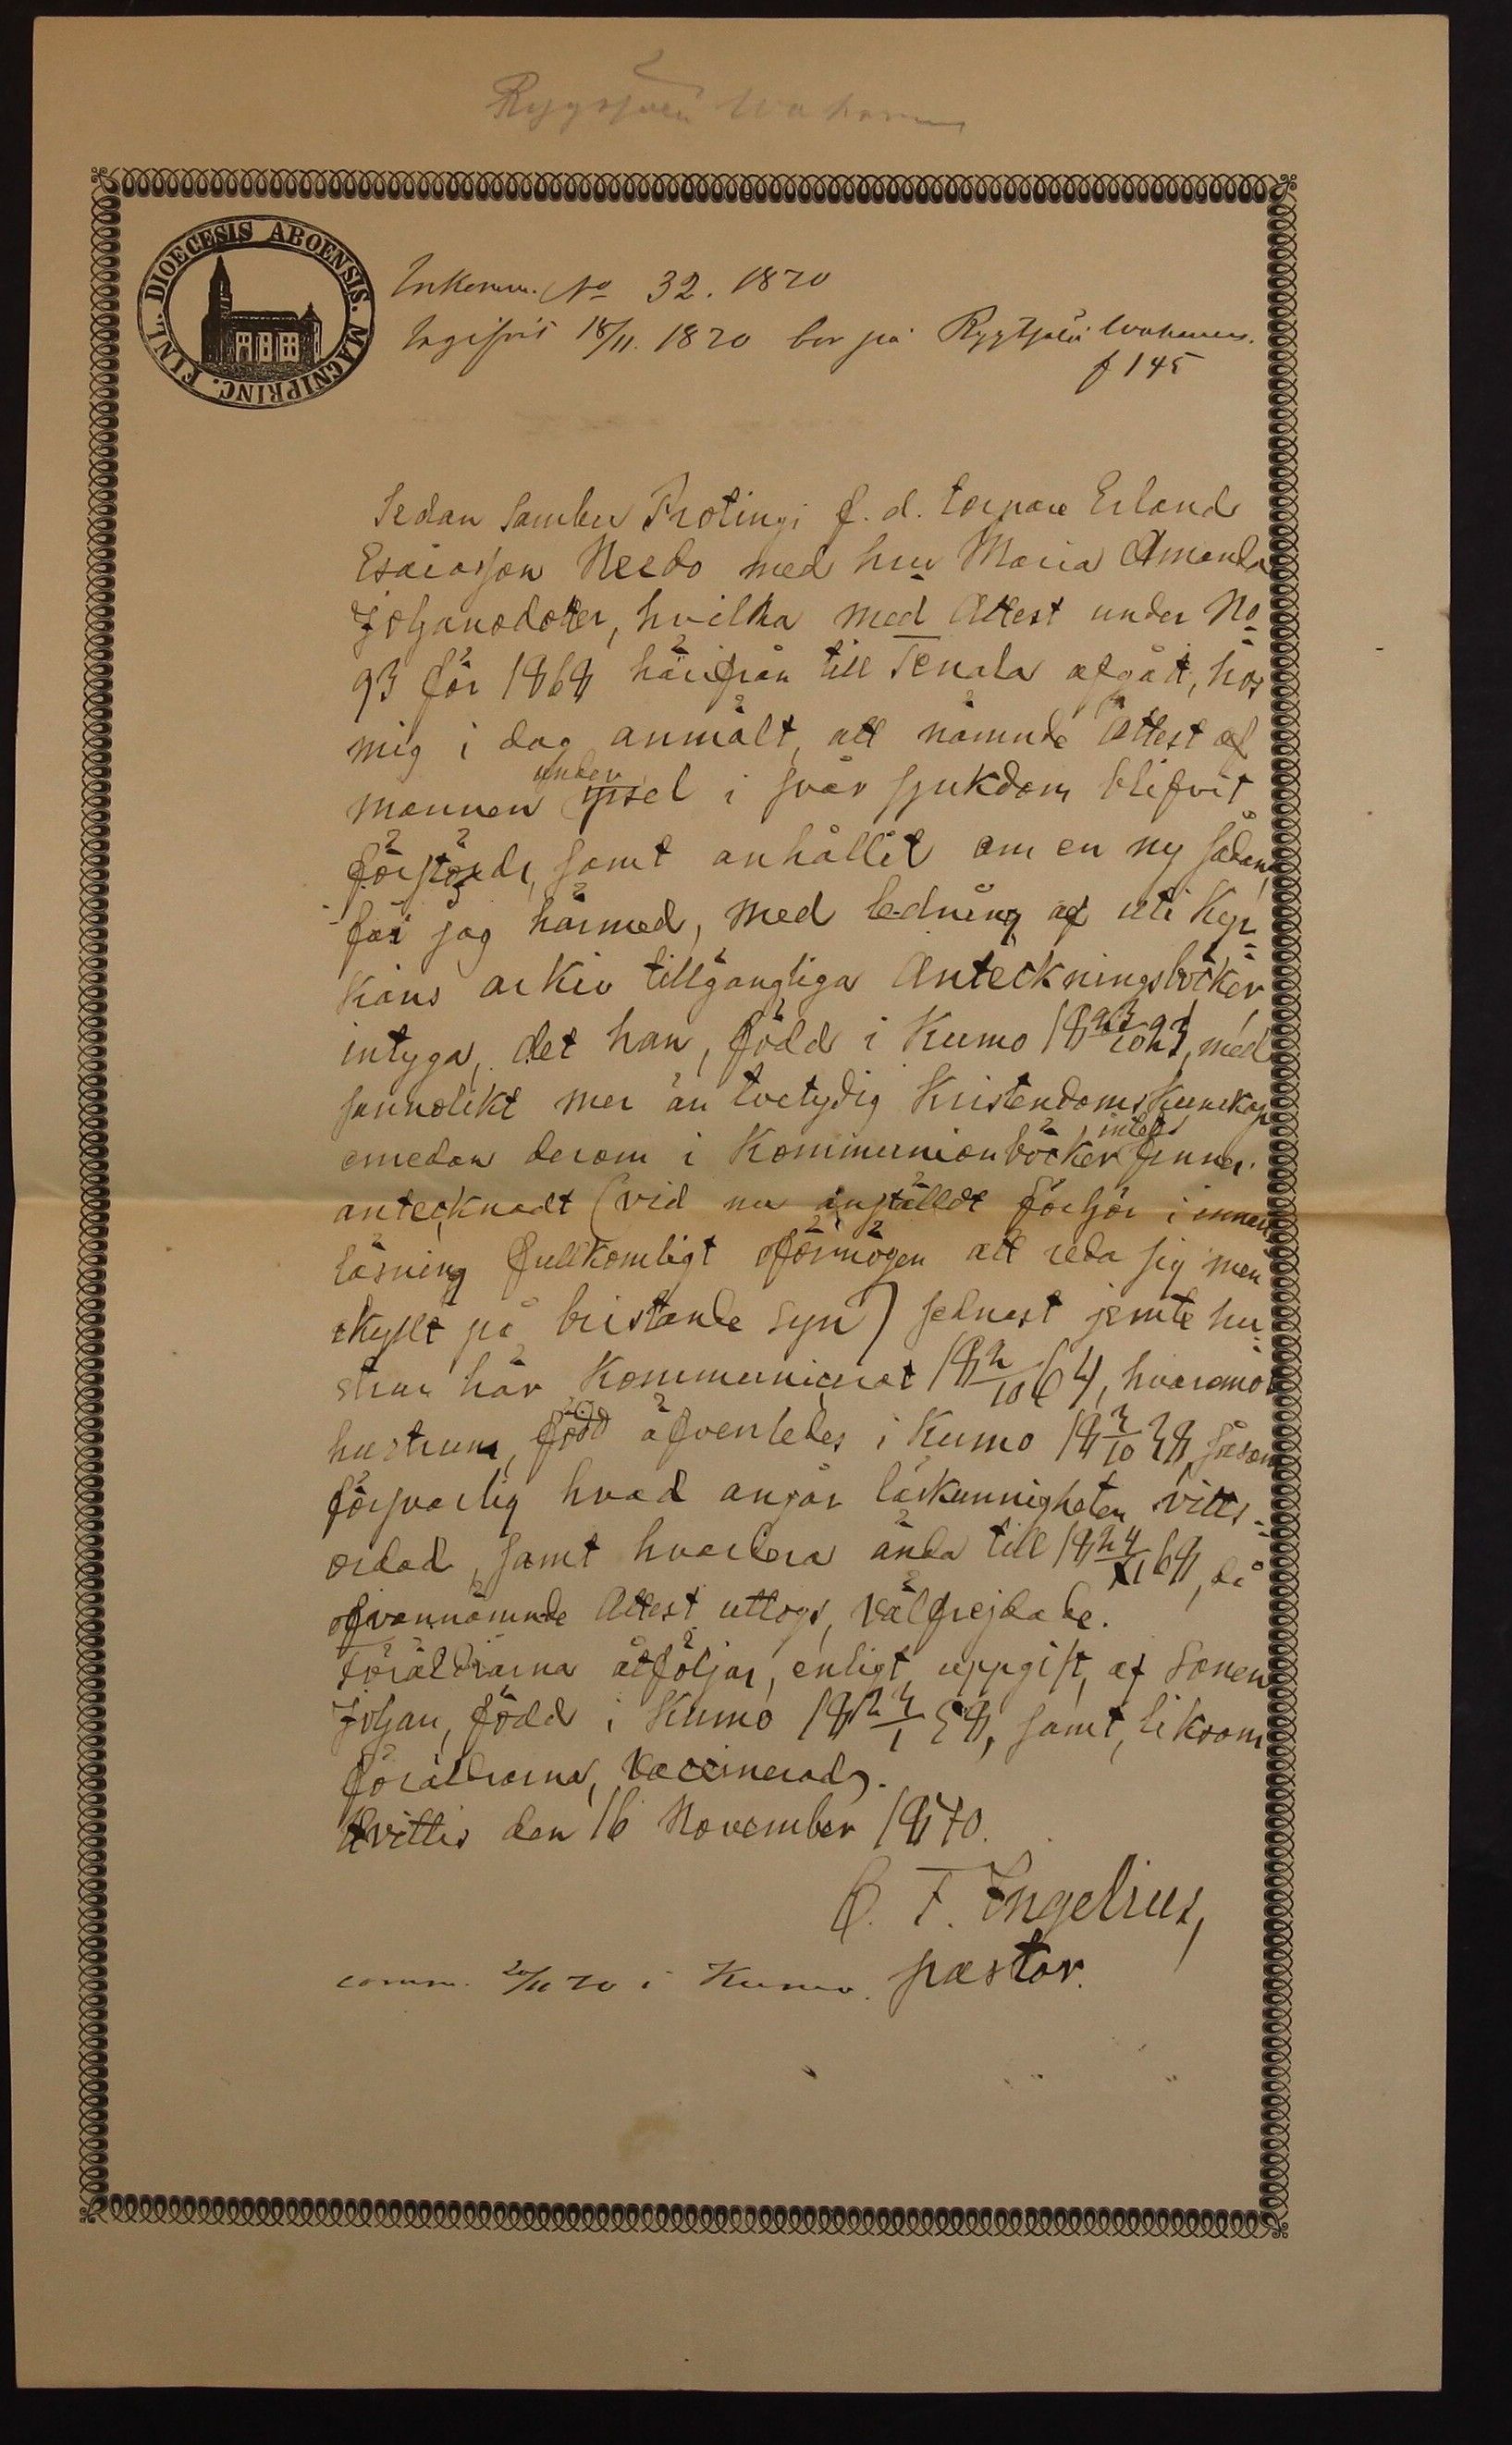 DIOECESIS ABOENSIS. MAGNIPRINC. FINL.
Inkomm. No 32. 1870
18/11. 1870 bor på
f 145
Sedan Sambu Protingi f. d. torpare Erland
Esaiasson Neebo med hru Maria Amanda
Johansdotter, hvilka med Attest under No
93 för 1868 härifrån till Tenala afgått, hos
mig i dag anmält, att nämnde Attest af
mannen under yrsel i svår sjukdom blifvit
förstörd, samt anhållit om en ny sådan,
får jag härmed, med ledning af uti Kyr-
kans arkiv tillgängliga Anteckningsböcker
intyga, det han, född i Kumo med
sannolikt mer än tvetydig Kristendomskunskap
emedan derom i Kommunionböcker intet finnes
antecknadt (vid nu anstäldt förhör i innan
läsning fullkomligt oförmögen att reda sig men
skyllt på bristande syn) sednast jemte hu-
strun här Kommunicerat 18 2/10 64, hvaremot
hustrun, född äfvenledes i Kumo 18 3/10 38 såsom
försvarlig hvad angår läskunnigheten vitts-
ordad, samt hvardera ända till 18 24/XI 68, då
ofvannämnde Attest uttogs, välfrejdade.
Föräldrarna åtföljas, enligt uppgift, af sonen
Johan, född i Kumo 18 23/1 58, samt, liksom
föräldrarna, vaccinerad.
Hvittis den 16 November 1870.
C. F. Ingelius,
pastor.
comm. 20/11 70 i Kumo.